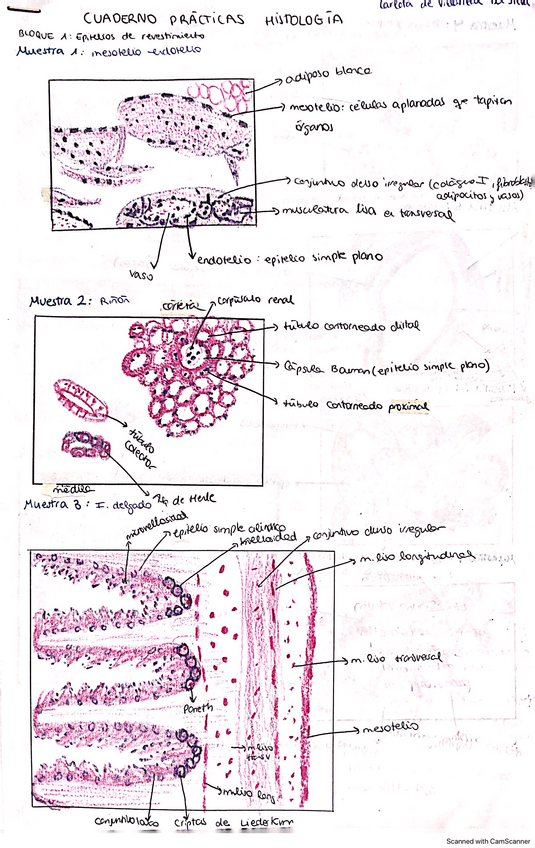 Carlota de
CUADERNO PRÁCTICAS HISTOLOGÍA
BLOQUE 1: Epitelios de revestimiento
Muestra 1: mesotelio-endotelio
adiposo blanco
mesotelio: células aplanadas que tapizan
órganos
conjuntivo denso irregular (colágeno I, fibroblast
adipocitos y vasos)
musculatura lisa en transversal
endotelio: epitelio simple plano
vaso
Muestra 2: Riñón
corteza
corpúsculo renal
túbulo contorneado distal
Cápsula Bauman (epitelio simple plano)
túbulo contorneado proximal
túbulo
colector
médula
Asa de Henle
Muestra 3: I. delgado
microvellosidad
epitelio simple cilíndrico
vellosidad
conjuntivo denso irregular
m. liso longitudinal
m. liso transversal
Paneth
mesotelio
m. liso
m. liso long.
conjuntivo laxo
Criptas de Lieberkum
Scanned with CamScanner